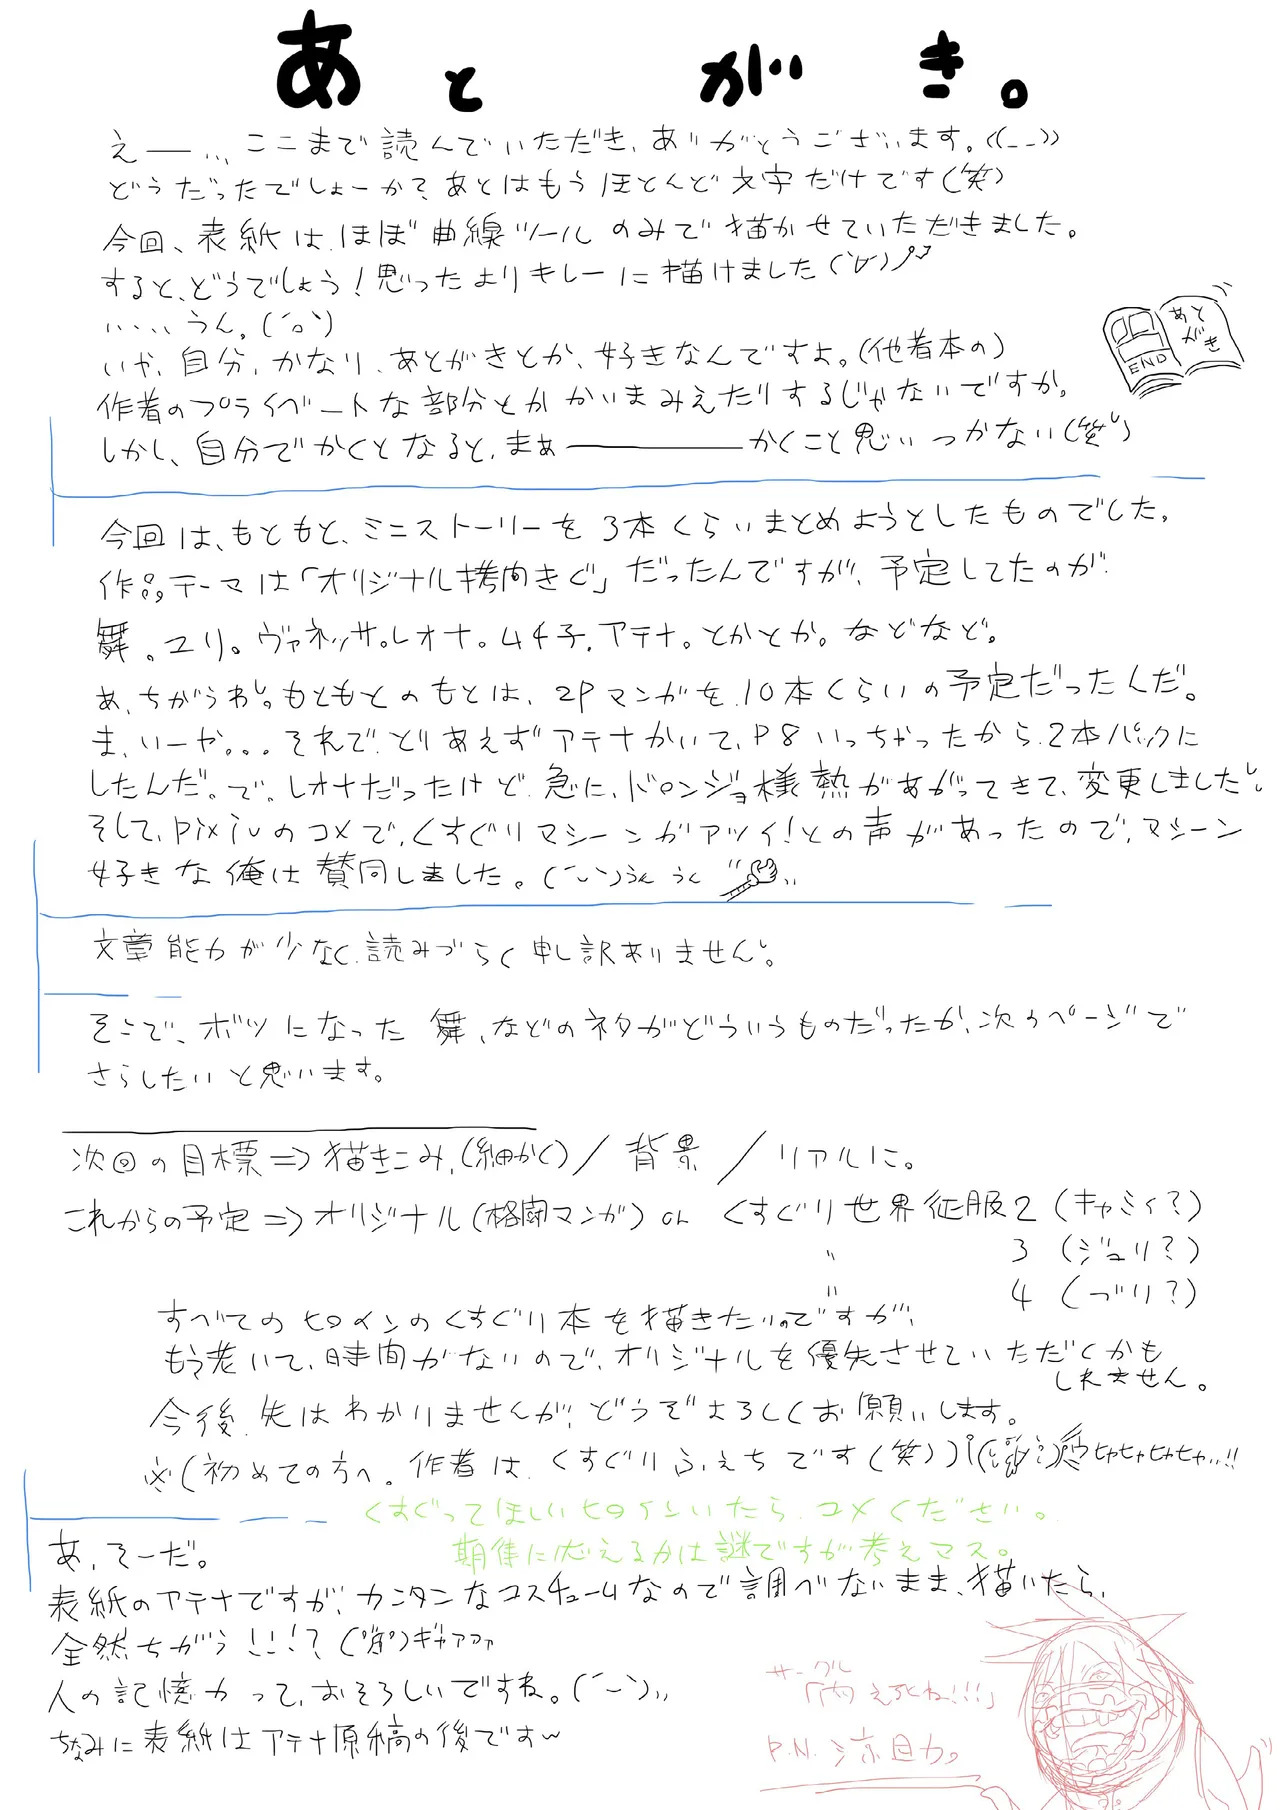 あとがき。
えー… ここまで読んでいただき、ありがとうございます。((_ _))
どうだったでしょーか?あとはもうほとんど文字だけです(笑)
今回、表紙は、ほぼ曲線ツールのみで描かせていただきました。
すると、どうでしょう!思ったよりキレーに描けました(´∀`)
・・・・うん。(´o`)
いや、自分、かなり、あとがきとか、好きなんですよ。(他者本の)
あとがき
END
作者のプライベートな部分とかかいまみえたりするじゃないですか。
しかし、自分でかくとなると、まぁーーーかくこと思いつかない(笑)
今回は、もともと、ミニストーリーを3本くらいまとめようとしたものでした。
作品テーマは「オリジナル拷問きぐ」だったんですが、予定してたのが
舞。ユリ。ヴァネッサ。レオナ。ムチ子。アテナ。とかとか。などなど。
あ、ちがうわ。もともとのもとは、2Pマンガを、10本くらいの予定だったんだ。
ま、いーや。。。それで、とりあえずアテナかいて、P8いっちゃったから、2本パックに
したんだ。で。レオナだったけど、急に、ドロンジョ様熱があがってきて、変更しました。
そして、pixivのコメで、くすぐりマシーンがアツイ!との声があったので、マシーン
好きな俺は賛同しました。(´ー`)うんうん
文章能力が少なく、読みづらく申し訳ありません。
そこで、ボツになった舞、などのネタがどういうものだったか、次のページで
さらしたいと思います。
次回の目標⇒描きこみ,(細かく)/背景/リアルに。
これからの予定⇒オリジナル(格闘マンガ) or くすぐり世界征服2(キャミィ?)
〃 3(ジュリ?)
〃 4(づり?)
すべてのヒロインのくすぐり本を描きたいのですが、
もう老いて、時間がないので、オリジナルを優先させていただくかも
しれません。
今後、先はわかりませんが、どうぞよろしくお願いします。
※(初めての方へ。作者は、くすぐりふぇちです(笑))ヒャヒャヒャヒャ…!!
くすぐってほしいヒロインいたら、コメください。
期待に応えるかは謎ですが考えマス。
あ、そーだ。
表紙のアテナですが、カンタンなコスチュームなので調べないまま、描いたら、
全然ちがう!!!?ギャアアァ
人の記憶力って、おそろしいですね。(´ー`)
ちなみに表紙はアテナ原稿の後です~
サークル
P.N.涼目力。